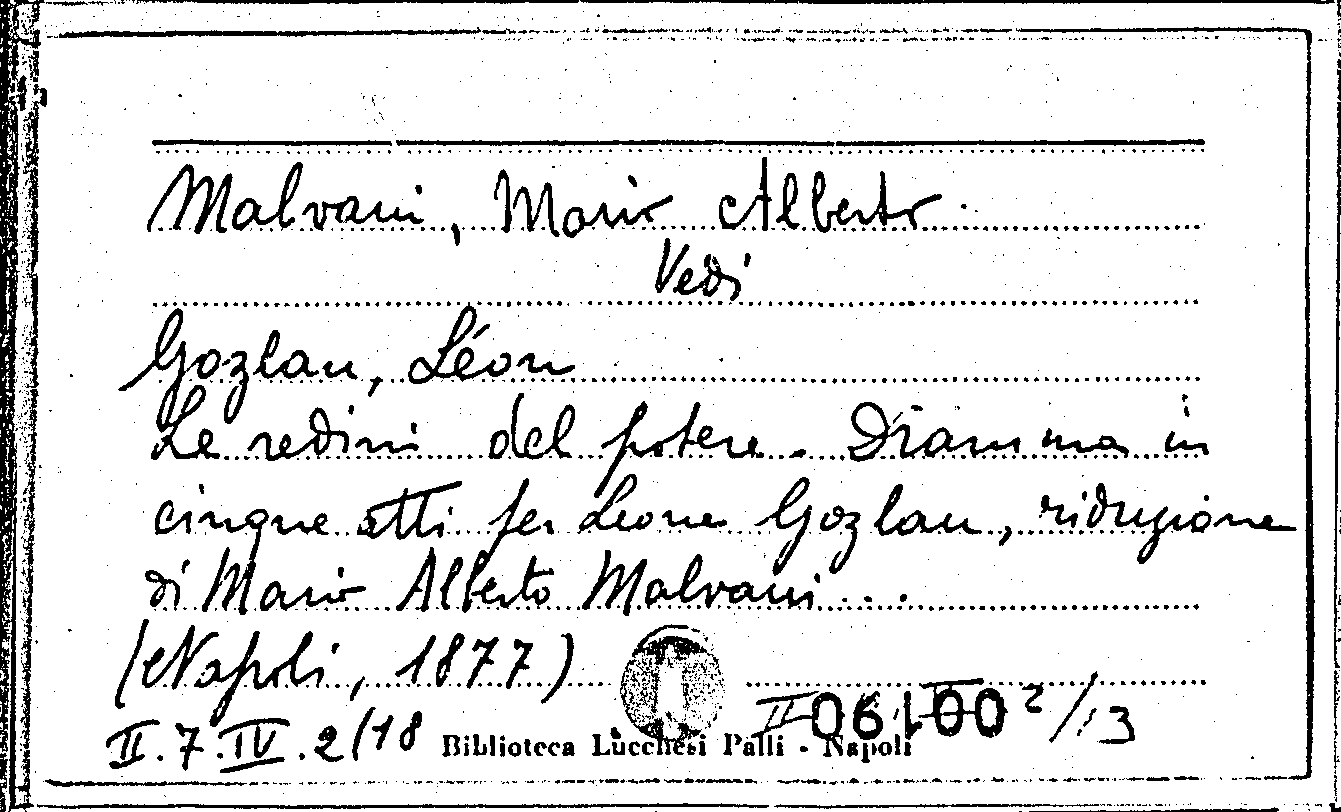 Malvani, Mario Alberto
Vedi
Gozlan, Léon
Le redini del potere. Dramma in
cinque atti per Leone Gozlan, riduzione
di Mario Alberto Malvani...
(Napoli, 1877)
II.7.IV.2/18
Biblioteca Lucchesi Palli - Napoli